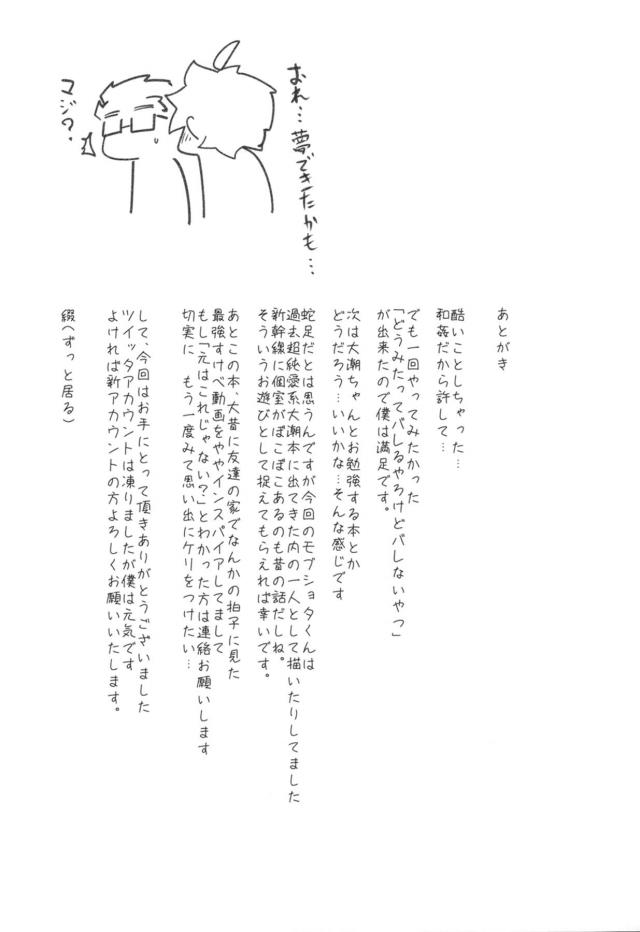 おれ…夢できたかも…
マジ?
あとがき
酷いことしちゃった…
和姦だから許して…
でも一回やってみたかった
「どうみたってバレるやろけどバレないやつ」
が出来たので僕は満足です。
次は大潮ちゃんとお勉強する本とか
どうだろう…いいかな…そんな感じです
蛇足だとは思うんですが今回のモブショタくんは
過去超純愛系大潮本に出てきた内の一人として描いたりしてました
新幹線に個室がぽこぽこあるのも昔の話だしね。
そういうお遊びとして捉えてもらえれば幸いです。
あとこの本、大昔に友達の家でなんかの拍子に見た
最強すけべ動画をややインスパイアしてまして
もし「えはこれじゃない?」とわかった方は連絡お願いします
切実に　もう一度みて思い出にケリをつけたい…
して、今回はお手にとって頂きありがとうございました
ツイッタアカウントは凍りましたが僕は元気です
よければ新アカウントの方よろしくお願いいたします。
綴(へずっと居る)